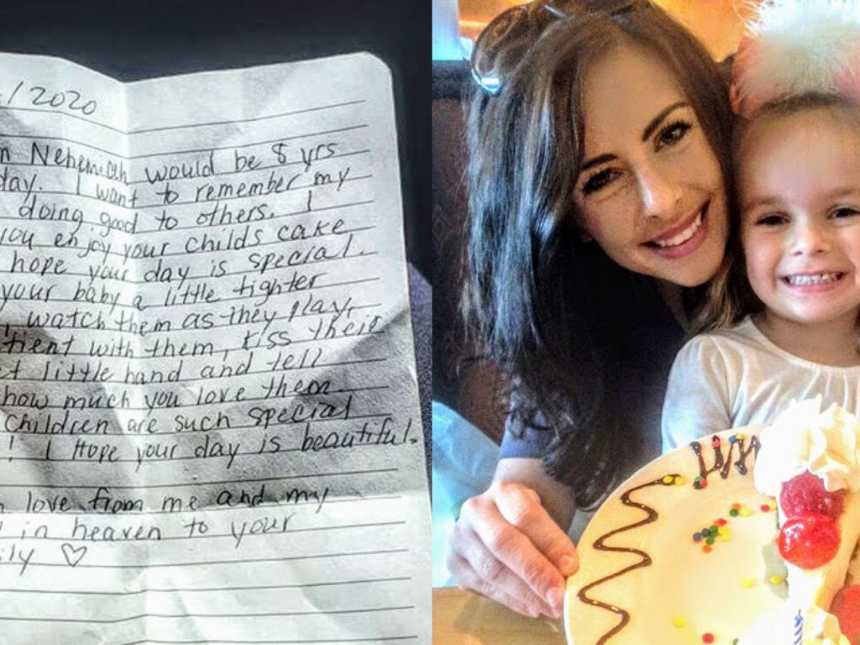 /2020
Nehemiah would be 8 yrs
day. I want to remember my
doing good to others. I
you enjoy your childs cake
hope your day is special.
your baby a little tighter
watch them as they play,
with them, kiss their
little hand and tell
how much you love them.
Children are such special
! I Hope your day is beautiful.
love from me and my
in heaven to your
♡